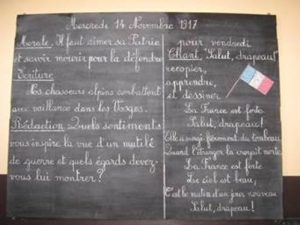 Mercredi 14 Novembre 1917
Morale. Il faut aimer sa Patrie
et savoir mourir pour la défendre
Ecriture
Nos chasseurs alpins combattent
avec vaillance dans les Vosges.
Rédaction. Quels sentiments
vous inspire la vue d'un mutilé
de guerre et quels égards devez-
vous lui montrer?
pour vendredi
Chant. Salut, drapeau!
recopier,
apprendre,
et dessiner
La France est forte
Salut, drapeau!
Elle a surgi fièrement du tombeau
Quand l'étranger la croyait morte
La France est forte
Le ciel est beau,
C'est le matin d'un jour nouveau
Salut, drapeau!